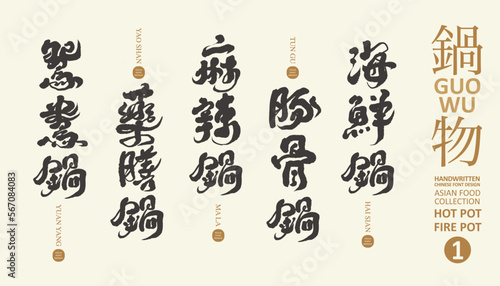 鍋物
GUO
WU
HANDWRITTEN
CHINESE FONT DESIGN
ASIAN FOOD
COLLECTION
HOT POT
FIRE POT
1
海鮮鍋
HAI SIAN
豚骨鍋
TUN GU
麻辣鍋
MALA
藥膳鍋
YAO SHAN
鴛鴦鍋
YUAN YANG
Adobe Stock | #567084083